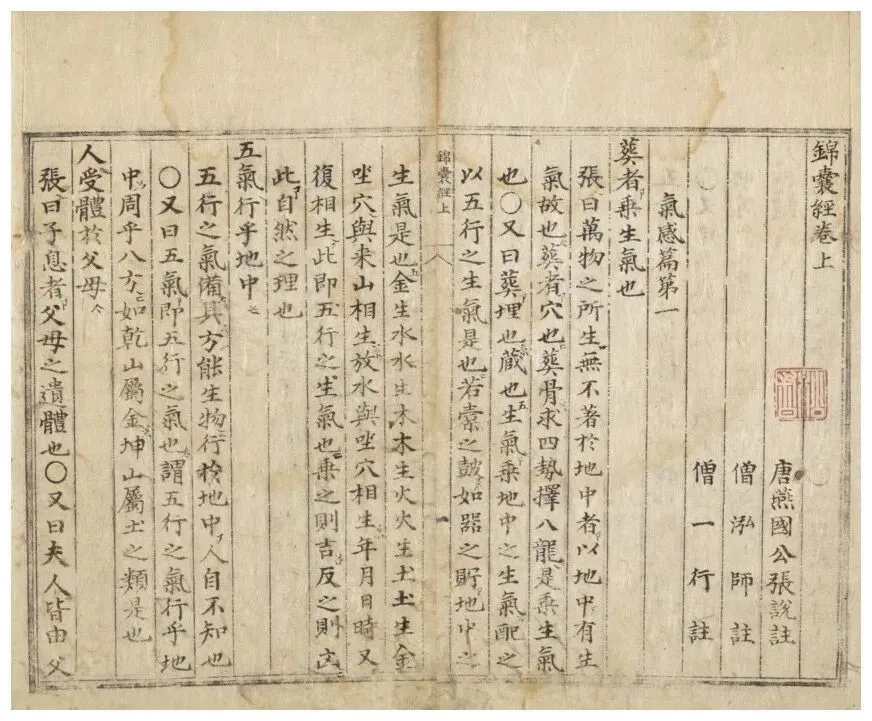 錦囊經卷上
唐燕國公張說註
僧泓師註
僧一行註
氣感篇第一
葬者乘生氣也
張曰萬物之所生無不著於地中者以地中有生
氣故也葬者穴也葬骨求四勢擇八龍是乘生氣
也〇又曰葬埋也蔵也生氣乘地中之生氣配之
以五行之生氣是也若槖之鼓如器之貯地中之
錦囊經上
生氣是也金生水水生木木生火火生土土生金
坐穴與来山相生放水與坐穴相生年月日時又
復相生此即五行之生氣也乘之則吉反之則凶
此自然之理也
五氣行乎地中
五行之氣備具方能生物行於地中人自不知也
〇又曰五氣即五行之氣也謂五行之氣行乎地
中周乎八方如乾山屬金坤山屬土之類是也
人受體於父母
張曰子息者父母之遺體也〇又曰夫人皆由父